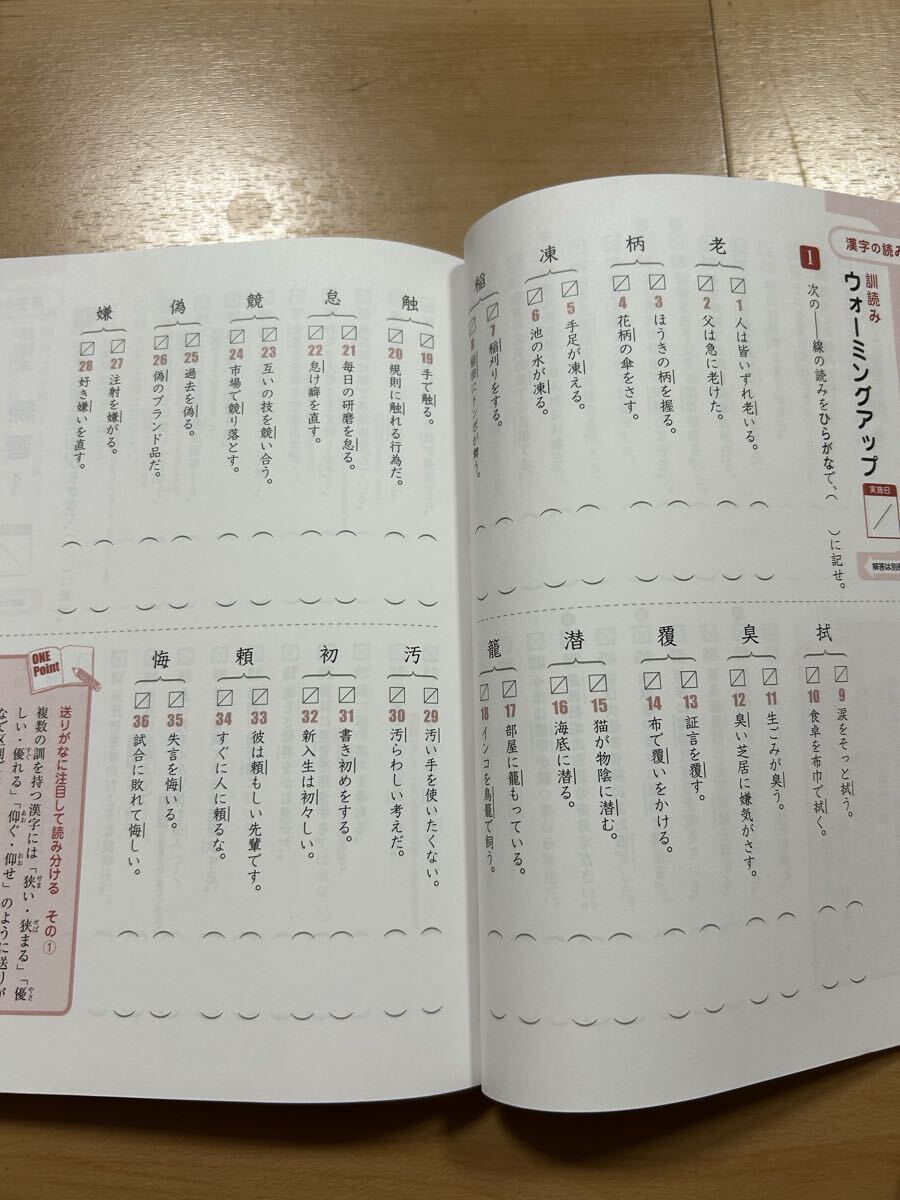 漢字の読み
訓読み
ウォーミングアップ
実施日
解答は別冊
1 次の――線の読みをひらがなで、( )に記せ。
老
1 人は皆いずれ老いる。
2 父は急に老けた。
柄
3 ほうきの柄を握る。
4 花柄の傘をさす。
凍
5 手足が凍える。
6 池の水が凍る。
稲
7 稲刈りをする。
8 稲田にトンボが舞う。
拭
9 涙をそっと拭う。
10 食卓を布巾で拭く。
臭
11 生ごみが臭う。
12 臭い芝居に嫌気がさす。
覆
13 証言を覆す。
14 布で覆いをかける。
潜
15 猫が物陰に潜む。
16 海底に潜る。
籠
17 部屋に籠もっている。
18 インコを鳥籠で飼う。
触
19 手で触る。
20 規則に触れる行為だ。
怠
21 毎日の研磨を怠る。
22 怠け癖を直す。
競
23 互いの技を競い合う。
24 市場で競り落とす。
偽
25 過去を偽る。
26 偽のブランド品だ。
嫌
27 注射を嫌がる。
28 好き嫌いを直す。
汚
29 汚い手を使いたくない。
30 汚らわしい考えだ。
初
31 書き初めをする。
32 新入生は初々しい。
頼
33 彼は頼もしい先輩です。
34 すぐに人に頼るな。
悔
35 失言を悔いる。
36 試合に敗れて悔しい。
ONE Point
送りがなに注目して読み分ける その①
複数の訓を持つ漢字には「狭い・狭まる」「優
しい・優れる」「仰ぐ・仰せ」のように送りが